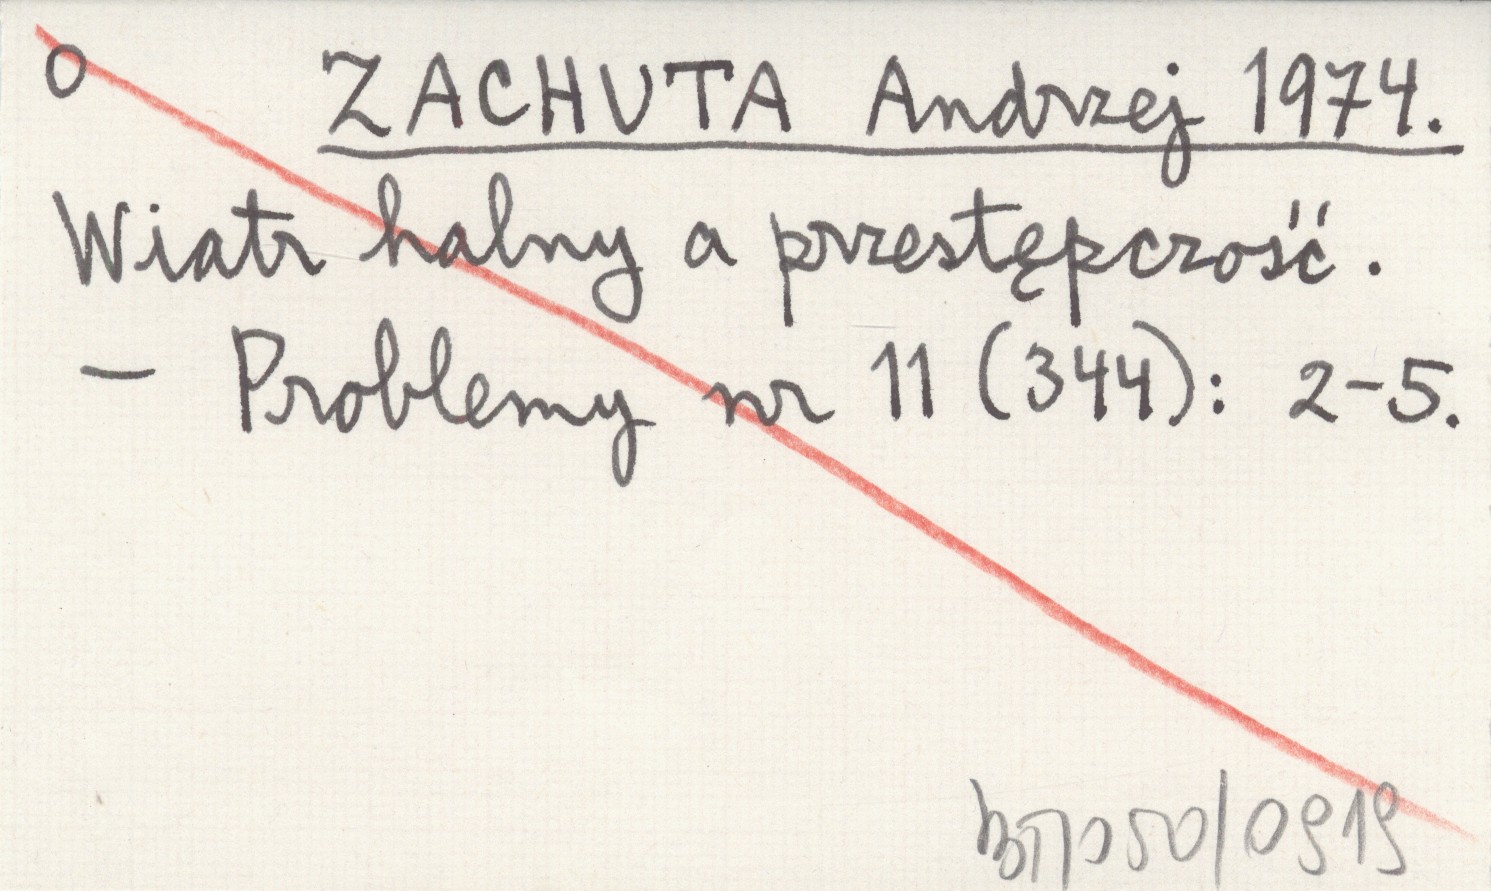 O ZACHUTA Andrzej 1974.
Wiatr halny a przestępczość.
– Problemy nr 11 (344): 2-5.
50/0919